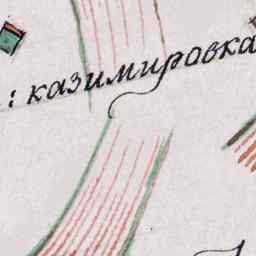 : казимировка